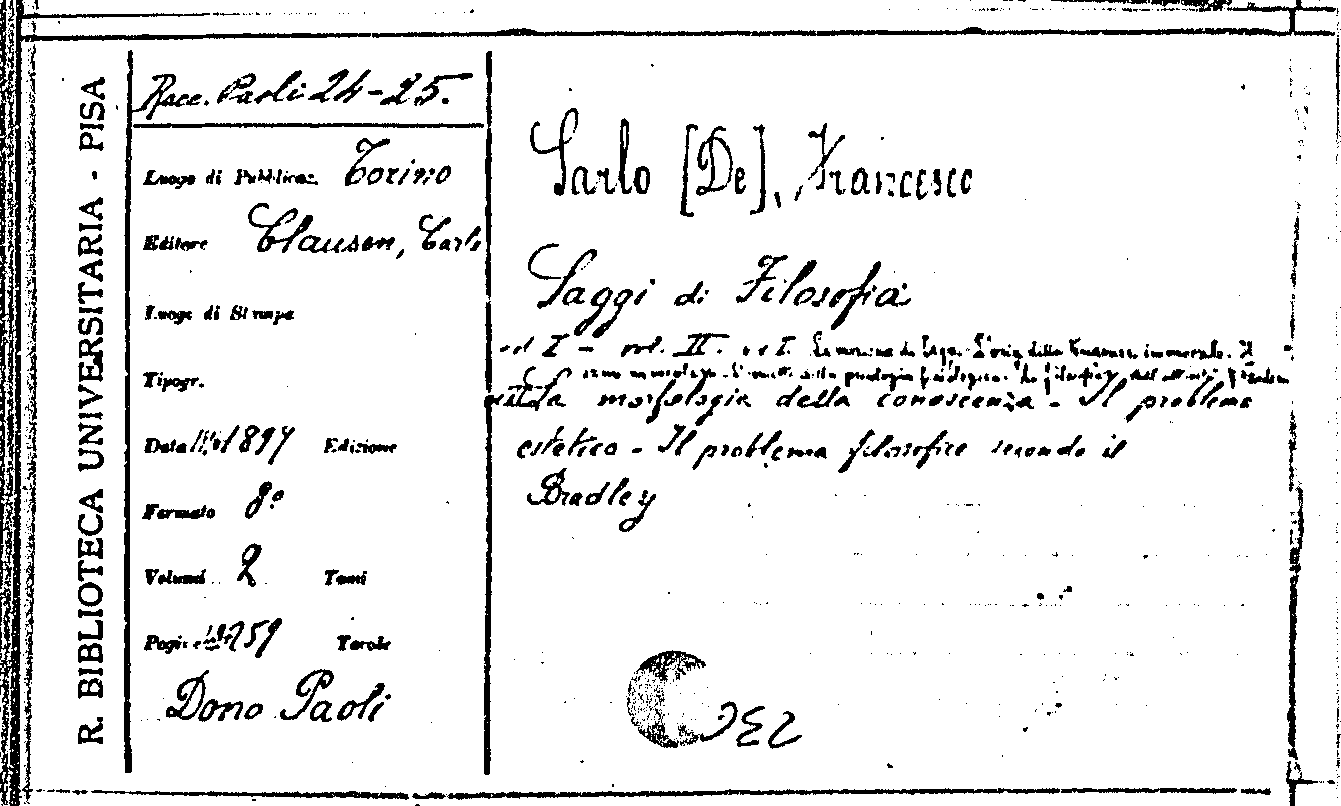 R. BIBLIOTECA UNIVERSITARIA - PISA
Racc. Paoli 24-25.
Luogo di Pubblicaz. Torino
Editore Clausen, Carlo
Luogo di Stampa
Tipogr.
Data 1897 Edizione
Formato 8º
Volumi 2 Tomi
Pagine 259 Tavole
Dono Paoli
Sarlo [De], Francesco
Saggi di Filosofia
vol I - vol. II. vol I.
La morfologia della conoscenza - Il problema
estetico - Il problema filosofico secondo il
Bradley